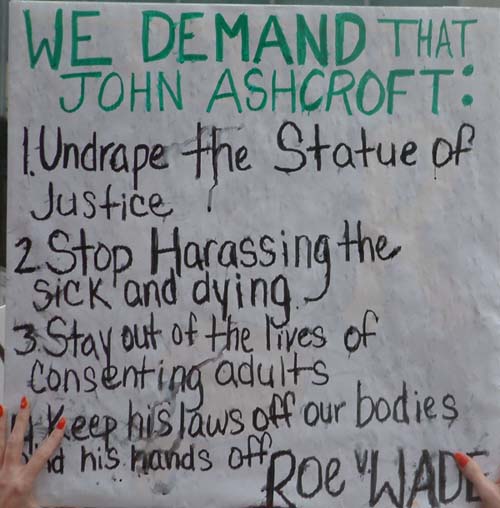 WE DEMAND THAT
JOHN ASHCROFT:
1. Undrape the Statue of
Justice
2. Stop Harassing the
sick and dying.
3. Stay out of the lives of
Consenting adults
4. Keep his laws off our bodies
and his hands off
Roe v. WADE